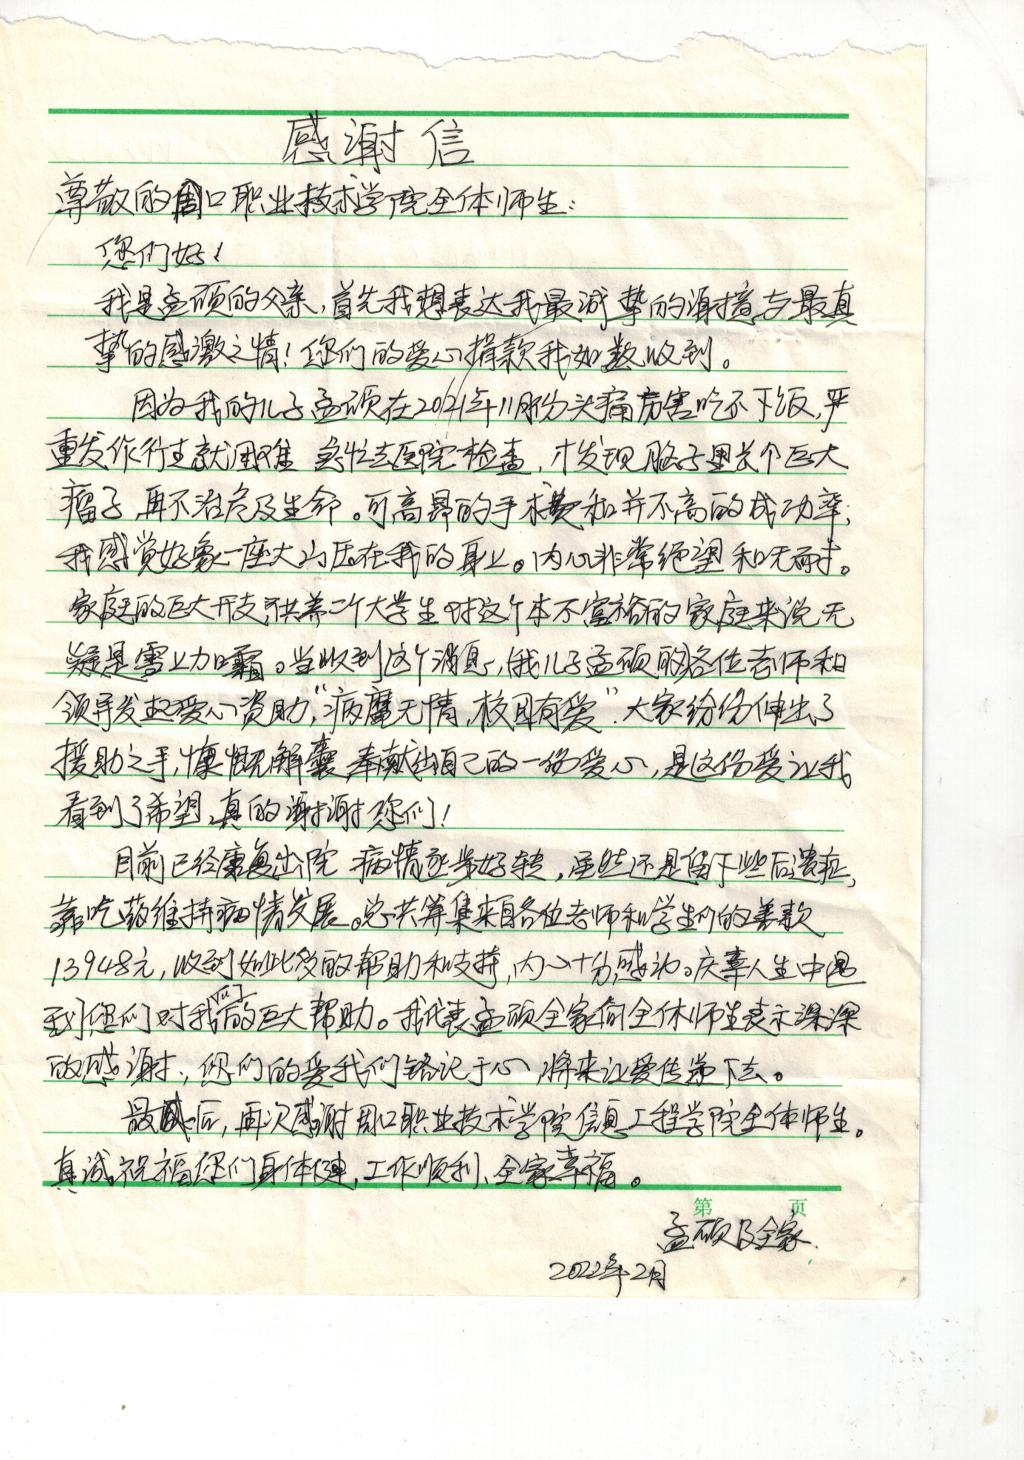 感谢信
尊敬的周口职业技术学院全体师生：
您们好！
我是孟硕的父亲，首先我想表达我最诚挚的谢意与最真
挚的感激之情！您们的爱心捐款我如数收到。
因为我的儿子孟硕在2021年11月份头痛厉害吃不下饭，严
重发作行走就困难 急忙去医院检查，才发现脑子里长个巨大
瘤子，再不治危及生命。可高昂的手术费和并不高的成功率，
我感觉好象一座大山压在我的身上。内心非常绝望和无奈。
家庭的巨大开支，供养二个大学生 对这个本不富裕的家庭来说无
疑是雪上加霜。当收到这个消息，我儿子孟硕的各位老师和
领导发起爱心资助，“病魔无情，校园有爱”。大家纷纷伸出了
援助之手，慷慨解囊，奉献出自己的一份爱心，是这份爱让我
看到了希望，真的谢谢您们！
目前已经康复出院 病情逐步好转，虽然还是留下些后遗症，
靠吃药维持病情发展。总共筹集来自各位老师和学生们的善款
13948元，收到如此多的帮助和支持，内心十分感动。庆幸人生中遇
到您们对我们的巨大帮助。我代表孟硕全家向全体师生表示深深
的感谢，您们的爱我们铭记于心，将来让爱传递下去。
最后，再次感谢周口职业技术学院信息工程学院全体师生。
真诚祝福您们身体健，工作顺利、全家幸福。
第 页
孟硕及全家
2022年2月